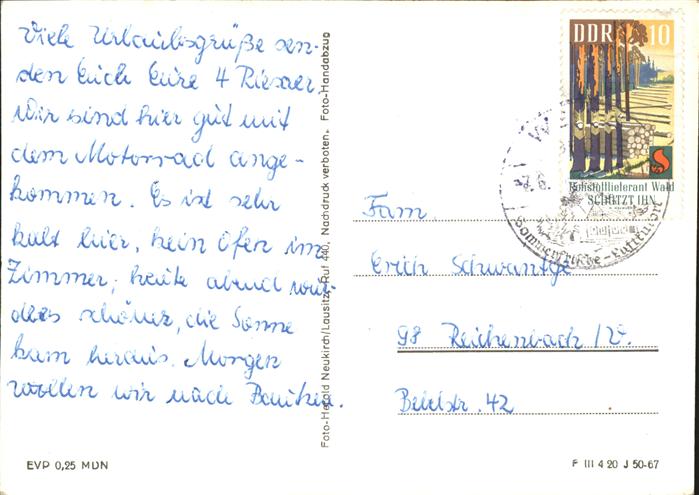 Viele Urlaubsgrüße sen-
den Euch Eure 4 Riesaer.
Wir sind hier gut mit
dem Motorrad ange-
kommen. Es ist sehr
kalt hier, kein Ofen im
Zimmer; heute abend wur-
de es schöner, die Sonne
kam heraus. Morgen
wollen wir nach Bautzen.
EVP 0,25 MDN
Foto-Herold Neukirch/Lausitz, Ruf 440, Nachdruck verboten. Foto-Handabzug
DDR 10
Rohstofflieferant Wald
SCHÜTZT IHN
Sommerfrische - Luftkurort
Fam.
Erich Schwantge
98 Reichenbach /V.
Bebelstr. 42
F III 4 20 J 50-67